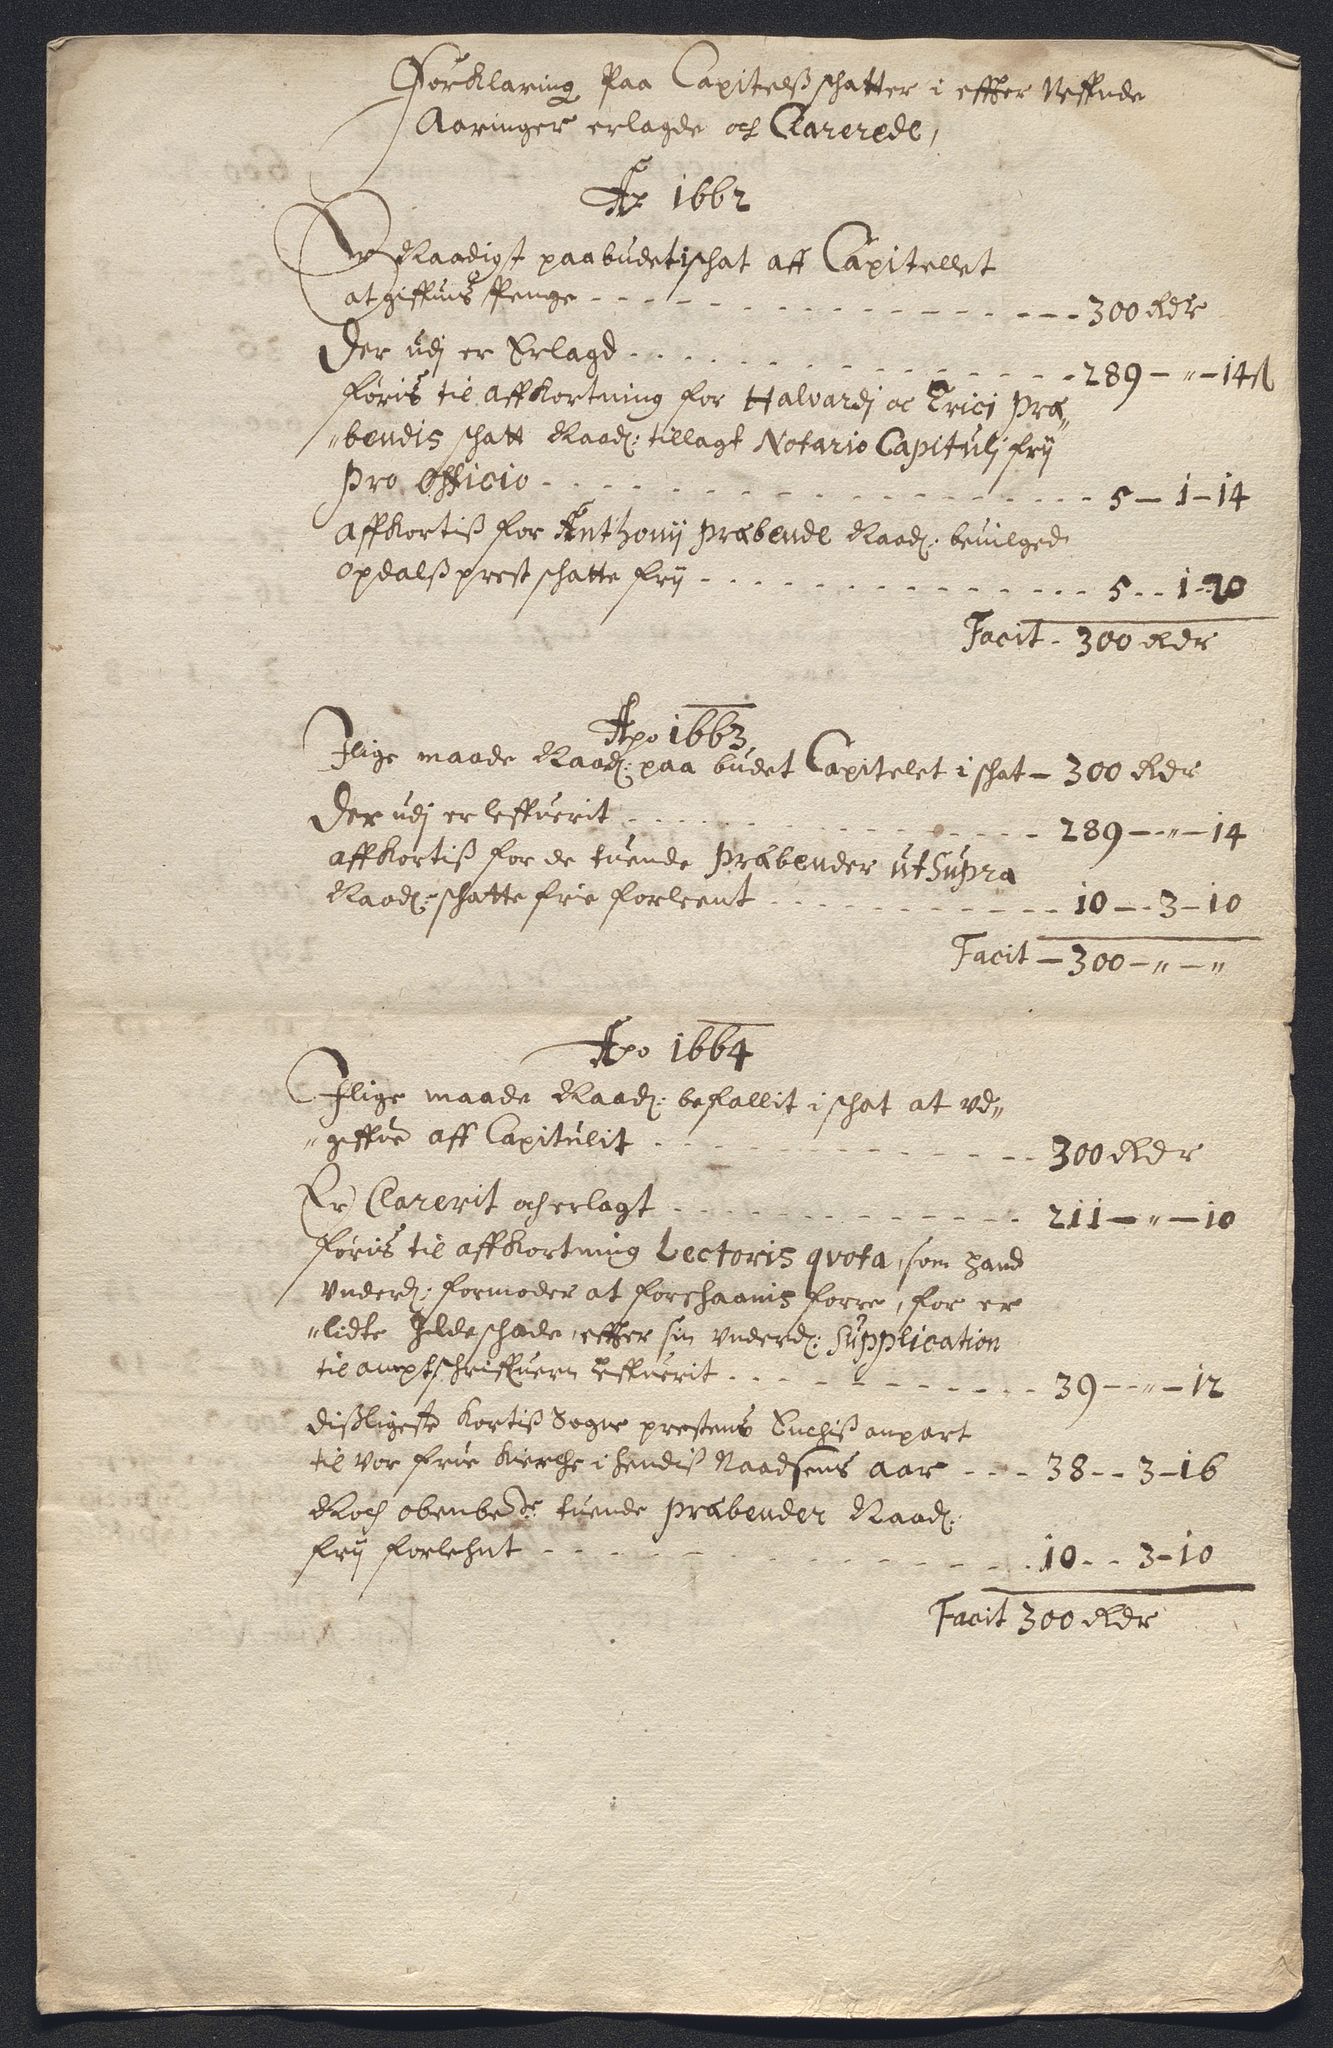 Forklaring Paa Capitelß schatter i effter Neffnde
Aaringer erlagde och Clarerede,
Ao 1662
Er Naadigst paabudet i schat aff Capitellet
at giffuis Penge - - - 300 Rdr
Der udj er Erlagd - - - 289 - " - 14 ß
føris til affkortning for Halvardj oc Erici Præ„
„bendis schatt Naad: tillagt Notario Capitulj frij
Pro Officio - - - 5 - 1 - 14
Affkortiß for Anthonij Præbende Naad: beuilged
Opdalß prest schatte frij - - - 5 - 1 - 20
Facit - 300 Rdr
Ao 1663
Jlige maade Naad: paa budet Capitelet i schat - 300 Rdr
Der udj er leffuerit - - - 289 - " - 14
affkortiß for de tuende Præbender ut Supra
Naad: schatte frie forleent - - - 10 - 3 - 10
Facit - 300 - " - "
Ao 1664
Jlige maade Naad: befallit i schat at vd„
„geffue aff Capitulit - - - 300 Rdr
Er Clarerit och erlagt - - - 211 - " - 10
føris til affkortning Lectoris qvota, som hand
vnderd: formoder at forschaanis forre, for er
„lidte Jldeschade, effter sin vnderd: Supplication
til amptschriffuern leffuerit - - - 39 - " - 12
dißligeste kortiß Sogne prestens Enchiß anpart
til vor frue Kierche i hendiß Naadsens aar - - - 38 - 3 - 16
Noch obenbete tuende Præbender Naad:
frij forlehnt - - - 10 - 3 - 10
Facit 300 Rdr